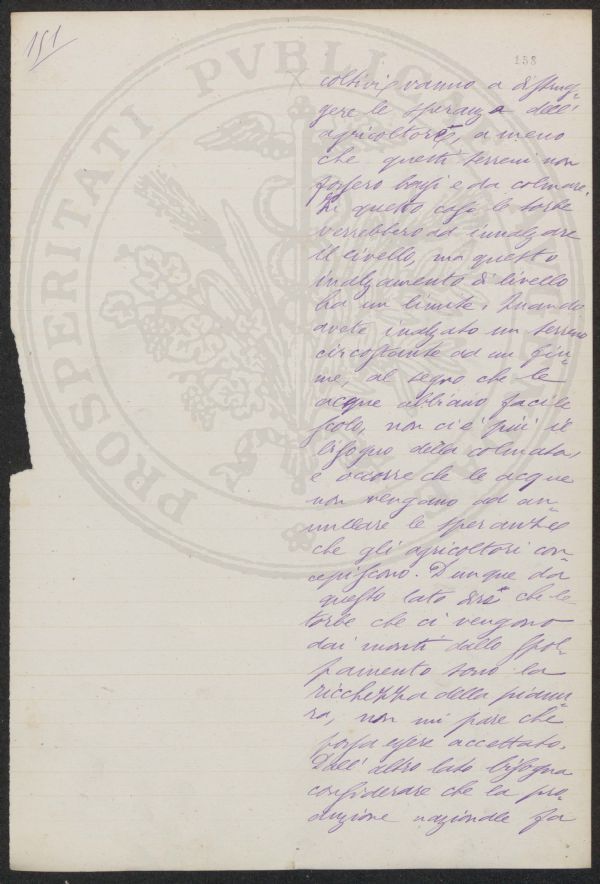 151
158
PROSPERITATI PVBLICAE
coltivi vanno a distrug=
gere le speranze dell'
agricoltore, a meno
che questi terreni non
fossero bassi e da colmare.
In questo caso le torbe
verrebbero ad innalzare
il livello, ma questo
inalzamento di livello
ha un limite. Quando
avete inalzato un terreno
circostante ad un fiu=
me, al segno che le
acque abbiano facile
scolo, non ci è più il
bisogno della colmata,
e occorre che le acque
non vengano ad an=
nullare le speranze
che gli agricoltori con=
cepiscono. Dunque da
questo lato dire che le
torbe che ci vengono
dai monti dallo spol=
pamento sono la
ricchezza della pianu=
ra, non mi pare che
possa essere accettato.
Dall'altro lato bisogna
considerare che la pro=
duzione nazionale fa